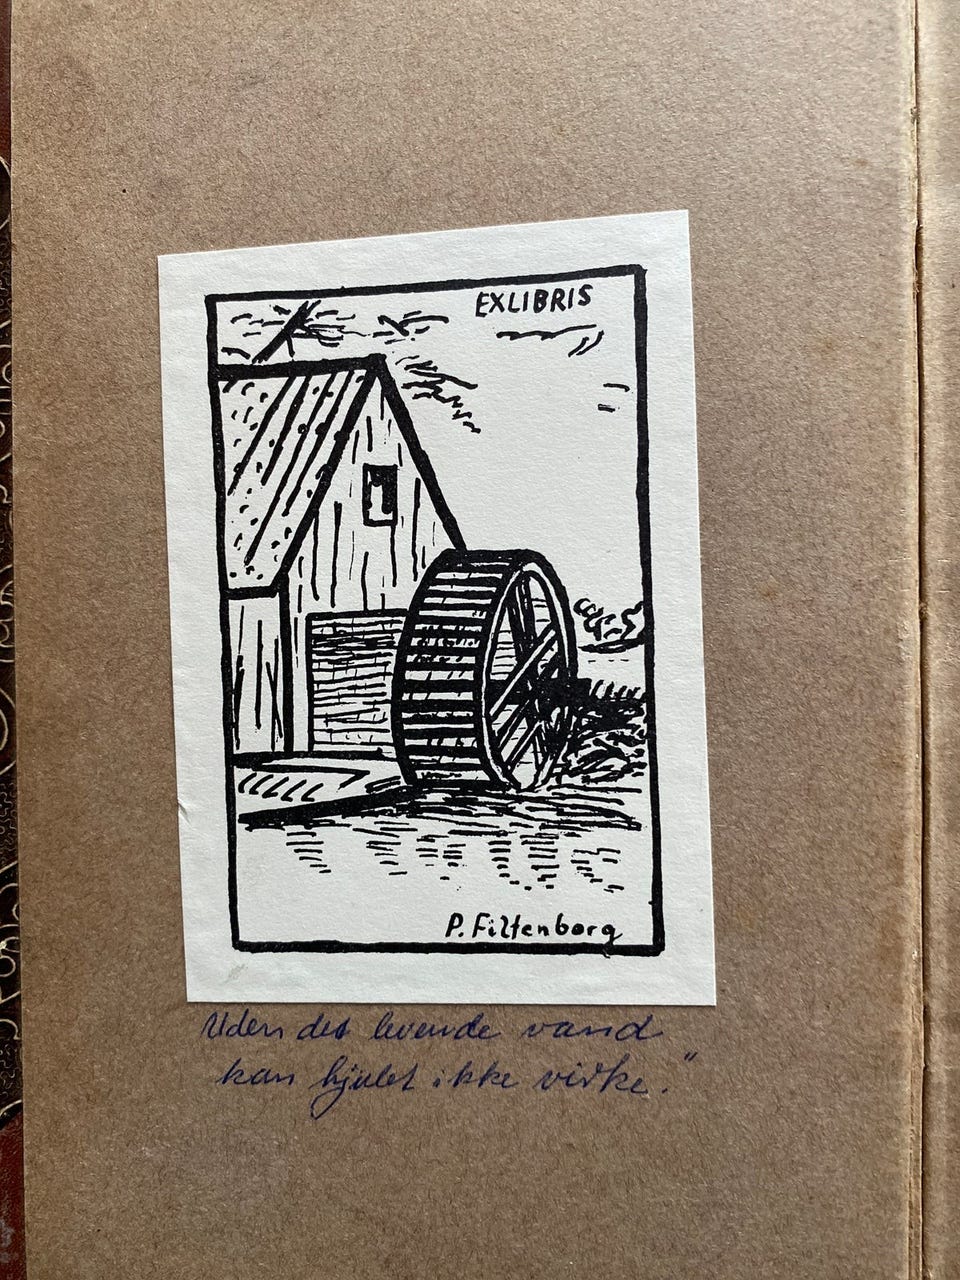 EXLIBRIS
P. Filtenborg
Uden det levende vand
kan hjulet ikke virke."